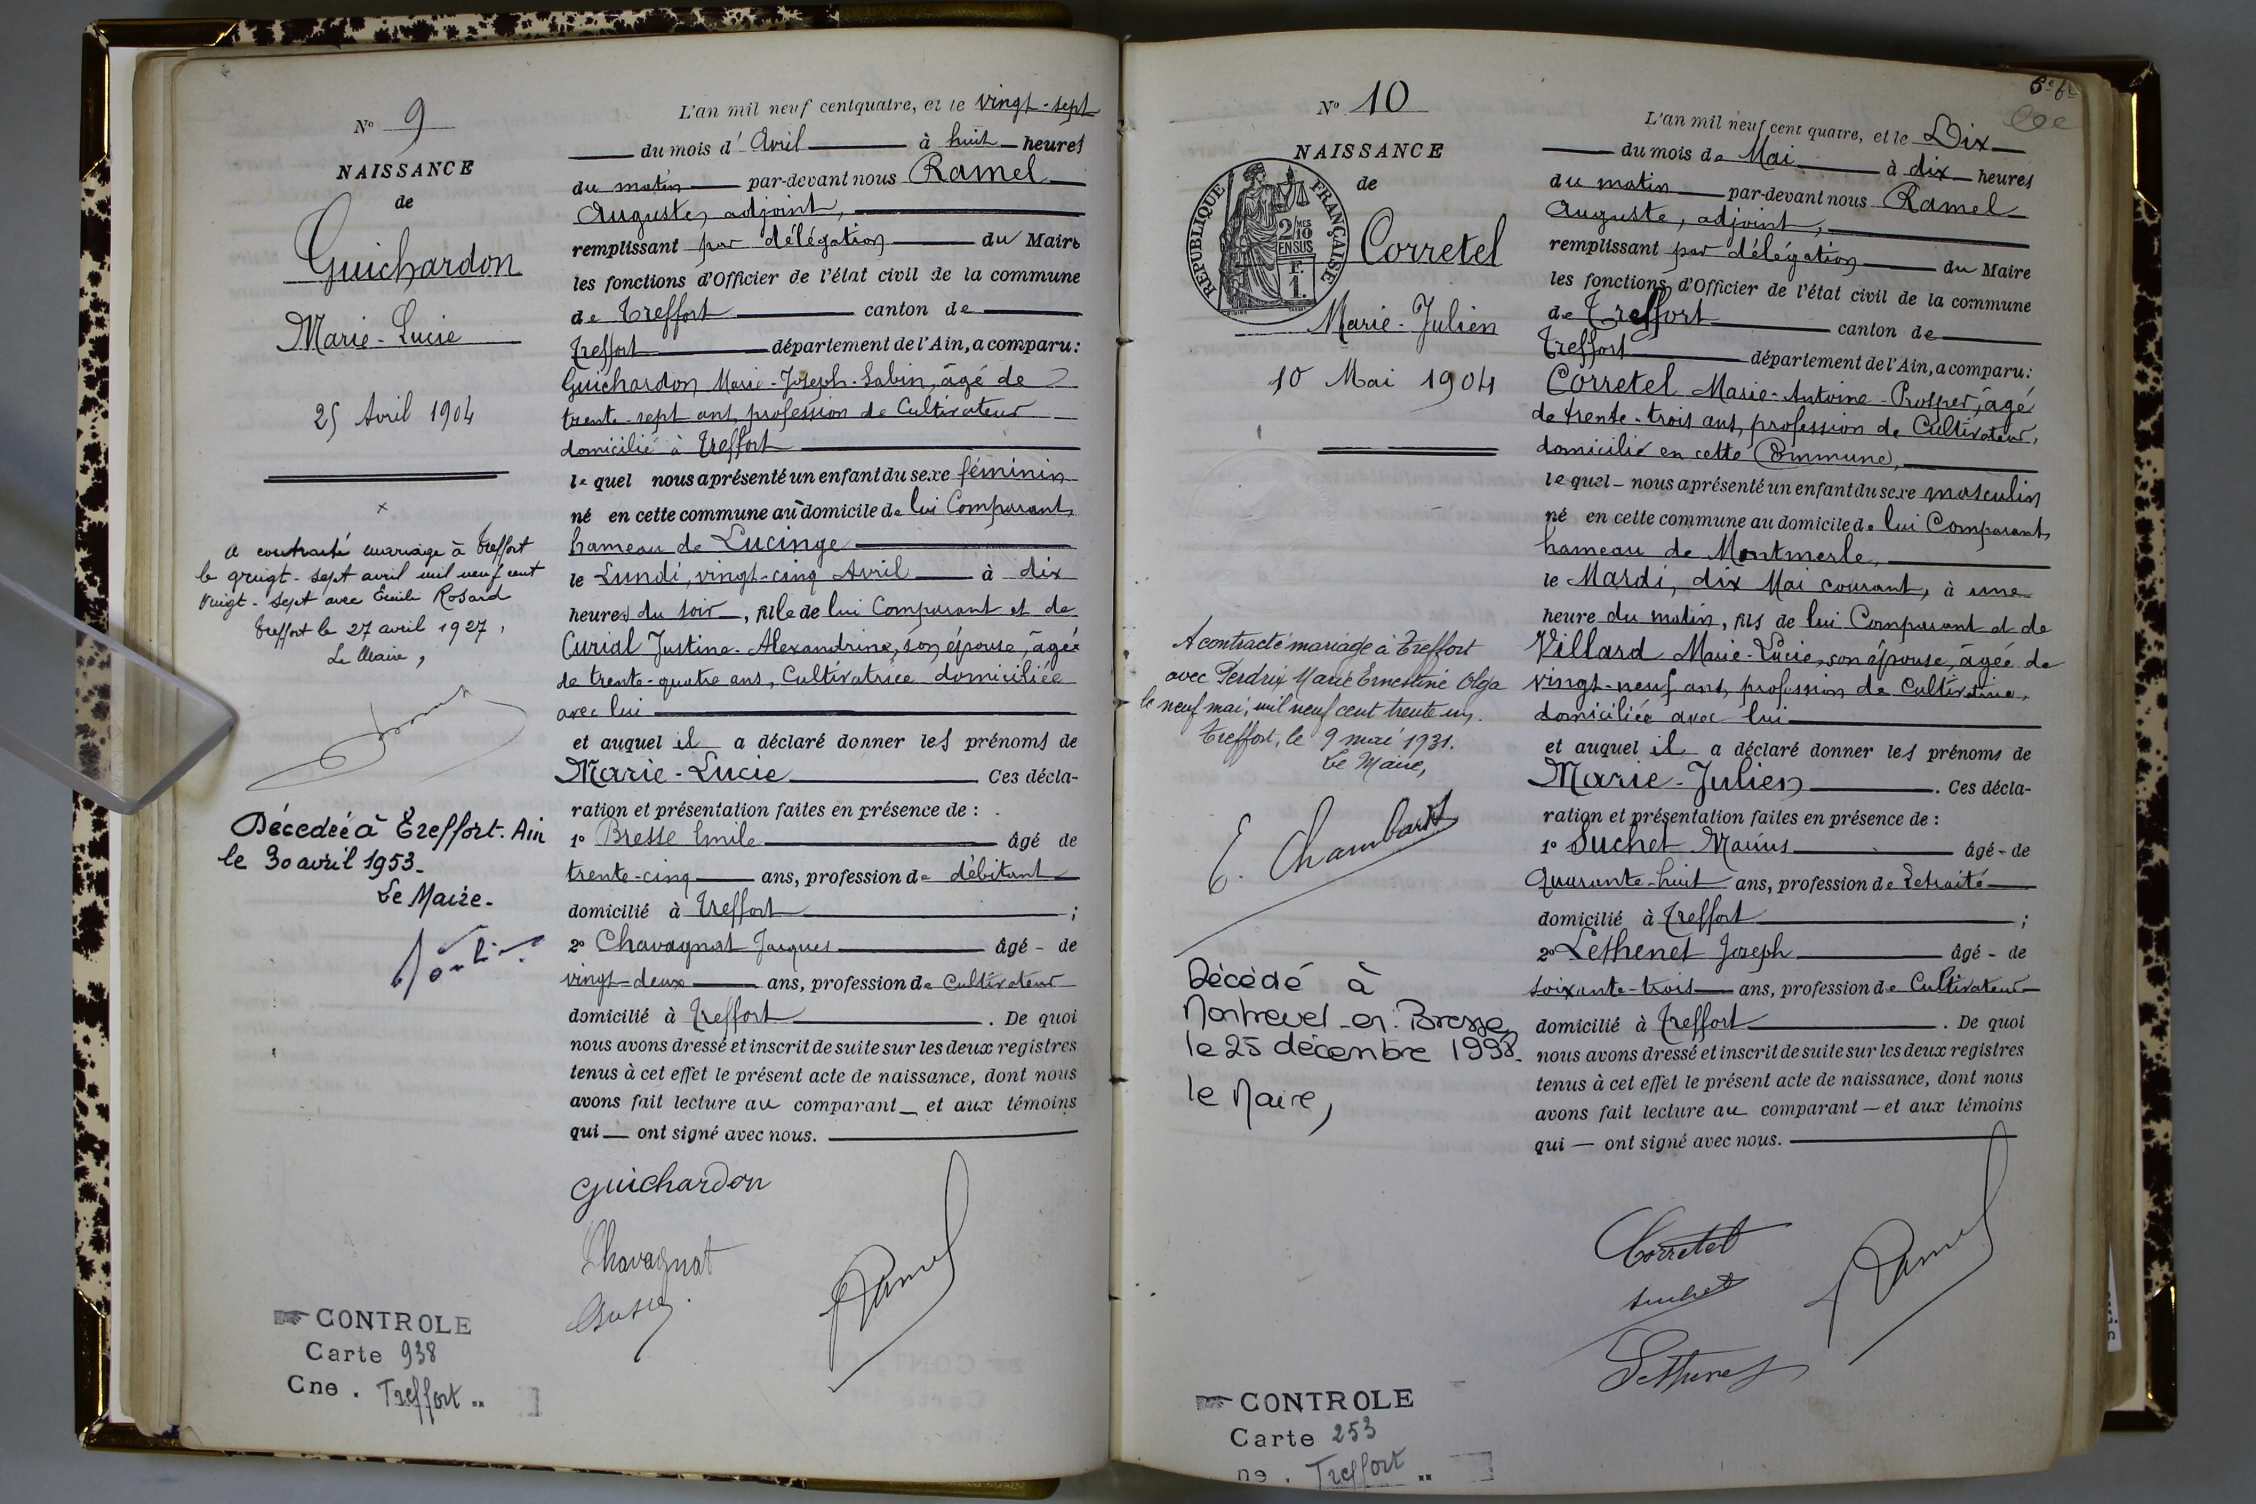 N° 9
NAISSANCE
de
Guichardon
Marie-Lucie
25 Avril 1904
A contracté mariage à Treffort
le vingt-sept avril mil neuf cent
vingt-sept avec Emile Rosard
Treffort le 27 avril 1927,
Le Maire,
Décedée à Treffort. Ain
le 30 avril 1953.
Le Maire.
CONTROLE
Carte 938
Cne. Treffort
L'an mil neuf cent quatre, et le vingt-sept
du mois d'Avril à huit heures
du matin par-devant nous Ramel
Auguste, adjoint,
remplissant par délégation du Maire
les fonctions d'Officier de l'état civil de la commune
de Treffort canton de
Treffort département de l'Ain, a comparu:
Guichardon Marie-Joseph-Sabin, âgé de
trente-sept ans, profession de Cultivateur
domicilié à Treffort
lequel nous a présenté un enfant du sexe féminin
né en cette commune au domicile de lui Comparant,
hameau de Lucinge
le Lundi, vingt-cinq Avril à dix
heures du soir, fille de lui Comparant et de
Curial Justine-Alexandrine, son épouse, âgée
de trente-quatre ans, Cultivatrice domiciliée
avec lui
et auquel il a déclaré donner les prénoms de
Marie-Lucie Ces décla-
ration et présentation faites en présence de :
1° Bresse Emile âgé de
trente-cinq ans, profession de débitant
domicilié à Treffort ;
2° Chavagnat Jacques âgé - de
vingt-deux ans, profession de Cultivateur
domicilié à Treffort . De quoi
nous avons dressé et inscrit de suite sur les deux registres
tenus à cet effet le présent acte de naissance, dont nous
avons fait lecture au comparant et aux témoins
qui ont signé avec nous.
Guichardon
Chavagnat
Ramel
N° 10
NAISSANCE
de
REPUBLIQUE FRANÇAISE
2/10 EN SUS
1 F.
Corretel
Marie-Julien
10 Mai 1904
A contracté mariage à Treffort
avec Perdrix Marie Ernestine Olga
le neuf mai, mil neuf cent trente un.
Treffort, le 9 mai 1931.
Le Maire,
E. Chambard
Décédé à
Montrevel-en-Bresse
le 25 décembre 1998.
le Maire,
CONTROLE
Carte 253
ne. Treffort
L'an mil neuf cent quatre, et le Dix
du mois de Mai à dix heures
du matin par-devant nous Ramel
Auguste, adjoint,
remplissant par délégation du Maire
les fonctions d'Officier de l'état civil de la commune
de Treffort canton de
Treffort département de l'Ain, a comparu:
Corretel Marie-Antoine-Prosper, âgé
de trente-trois ans, profession de Cultivateur,
domicilié en cette Commune,
lequel nous a présenté un enfant du sexe masculin
né en cette commune au domicile de lui Comparant,
hameau de Montmerle,
le Mardi, dix Mai courant, à une
heure du matin, fils de lui Comparant et de
Villard Marie-Lucie, son épouse, âgée de
vingt-neuf ans, profession de Cultivatrice,
domiciliée avec lui
et auquel il a déclaré donner les prénoms de
Marie-Julien . Ces décla-
ration et présentation faites en présence de :
1° Suchet Marius âgé - de
Quarante-huit ans, profession de Retraité
domicilié à Treffort ;
2° Lethenet Joseph âgé - de
soixante-trois ans, profession de Cultivateur
domicilié à Treffort . De quoi
nous avons dressé et inscrit de suite sur les deux registres
tenus à cet effet le présent acte de naissance, dont nous
avons fait lecture au comparant et aux témoins
qui ont signé avec nous.
Corretel
Suchet
Ramel
Lethenet